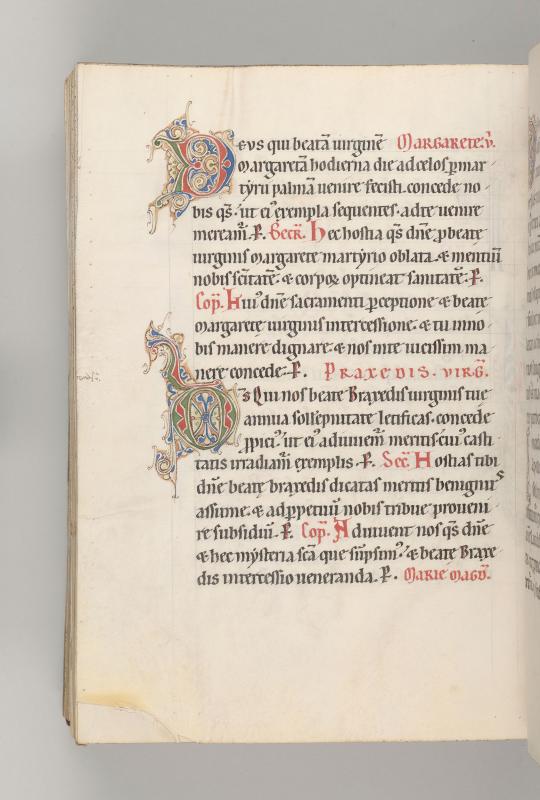 Deus qui beatā uirginē Margarete.v.
margaretā hodierna die ad celos ꝑmar
tyrii palmā uenire fecisti. concede no-
bis qs̄. ut ei᾽ exempla sequentes. ad te uenire
meream̄. P. Secr̄. Hec hostia qs̄ dn̄e ꝓ beate
uirginis margarete martyrio oblata. & mentiū
nobis sc̄itatē. & corpoꝝ optineat sanitatē. P.
Cōp̄. Hui᾽ dn̄e sacramenti ꝑceptione & beate
margarete uirginis intercessione. & tu in no-
bis manere dignare. & nos in te uicissim ma-
nere concede. P. PRAXEDIS. VIRḠ.
Ds̄ Qui nos beate Braxedis uirginis tue
annua sollempnitate letificas. concede
ꝓpici᾽ ut ei᾽ adiuuem̄ meritis cui᾽ casti-
tatis irradiam̄ exemplis. P. Sec̄. Hostias tibi
dn̄e beatę braxedis dicatas meritis benignus
assume. & ad ꝑpetuū nobis tribue proueni-
re subsidiū. P. Cōp̄. Adiuuent nos qs̄ dn̄e
& hec mysteria sc̄a que sūpsim᾽. & beate Braxe
dis intercessio ueneranda. P. Marie magd̄.